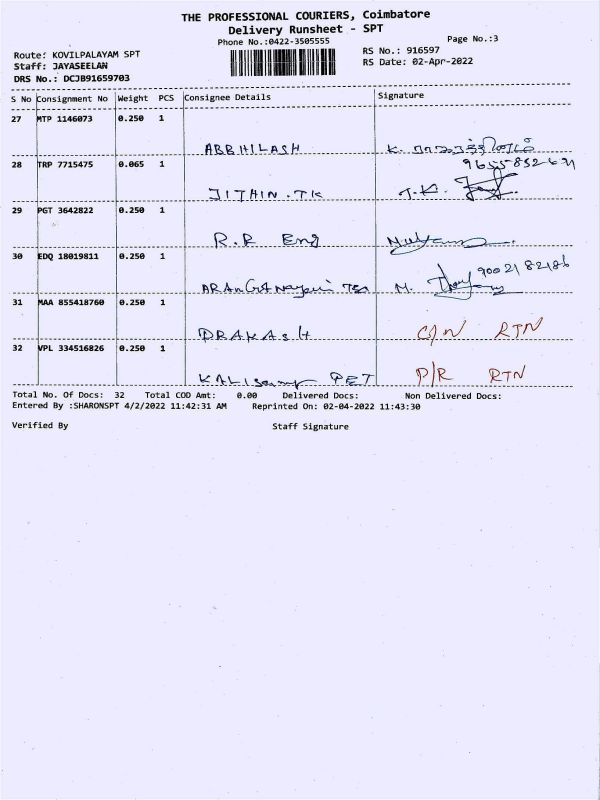 THE PROFESSIONAL COURIERS, Coimbatore
Delivery Runsheet - SPT
Phone No.:0422-3505555
Page No.:3
Route: KOVILPALAYAM SPT
RS No.: 916597
Staff: JAYASEELAN
RS Date: 02-Apr-2022
DRS No.: DCJB91659703
S No Consignment No Weight PCS Consignee Details Signature
27 MTP 1146073 0.250 1
ABBHILASH K.
28 TRP 7715475 0.065 1
JITHIN.TK T.K.
29 PGT 3642822 0.250 1
R.R Eng
30 EDQ 18019811 0.250 1
9002182186
M.
31 MAA 855418760 0.250 1
PRAKASH C/N RTN
32 VPL 334516826 0.250 1
PET P/R RTN
Total No. Of Docs: 32 Total COD Amt: 0.00 Delivered Docs: Non Delivered Docs:
Entered By :SHARONSPT 4/2/2022 11:42:31 AM Reprinted On: 02-04-2022 11:43:30
Verified By Staff Signature